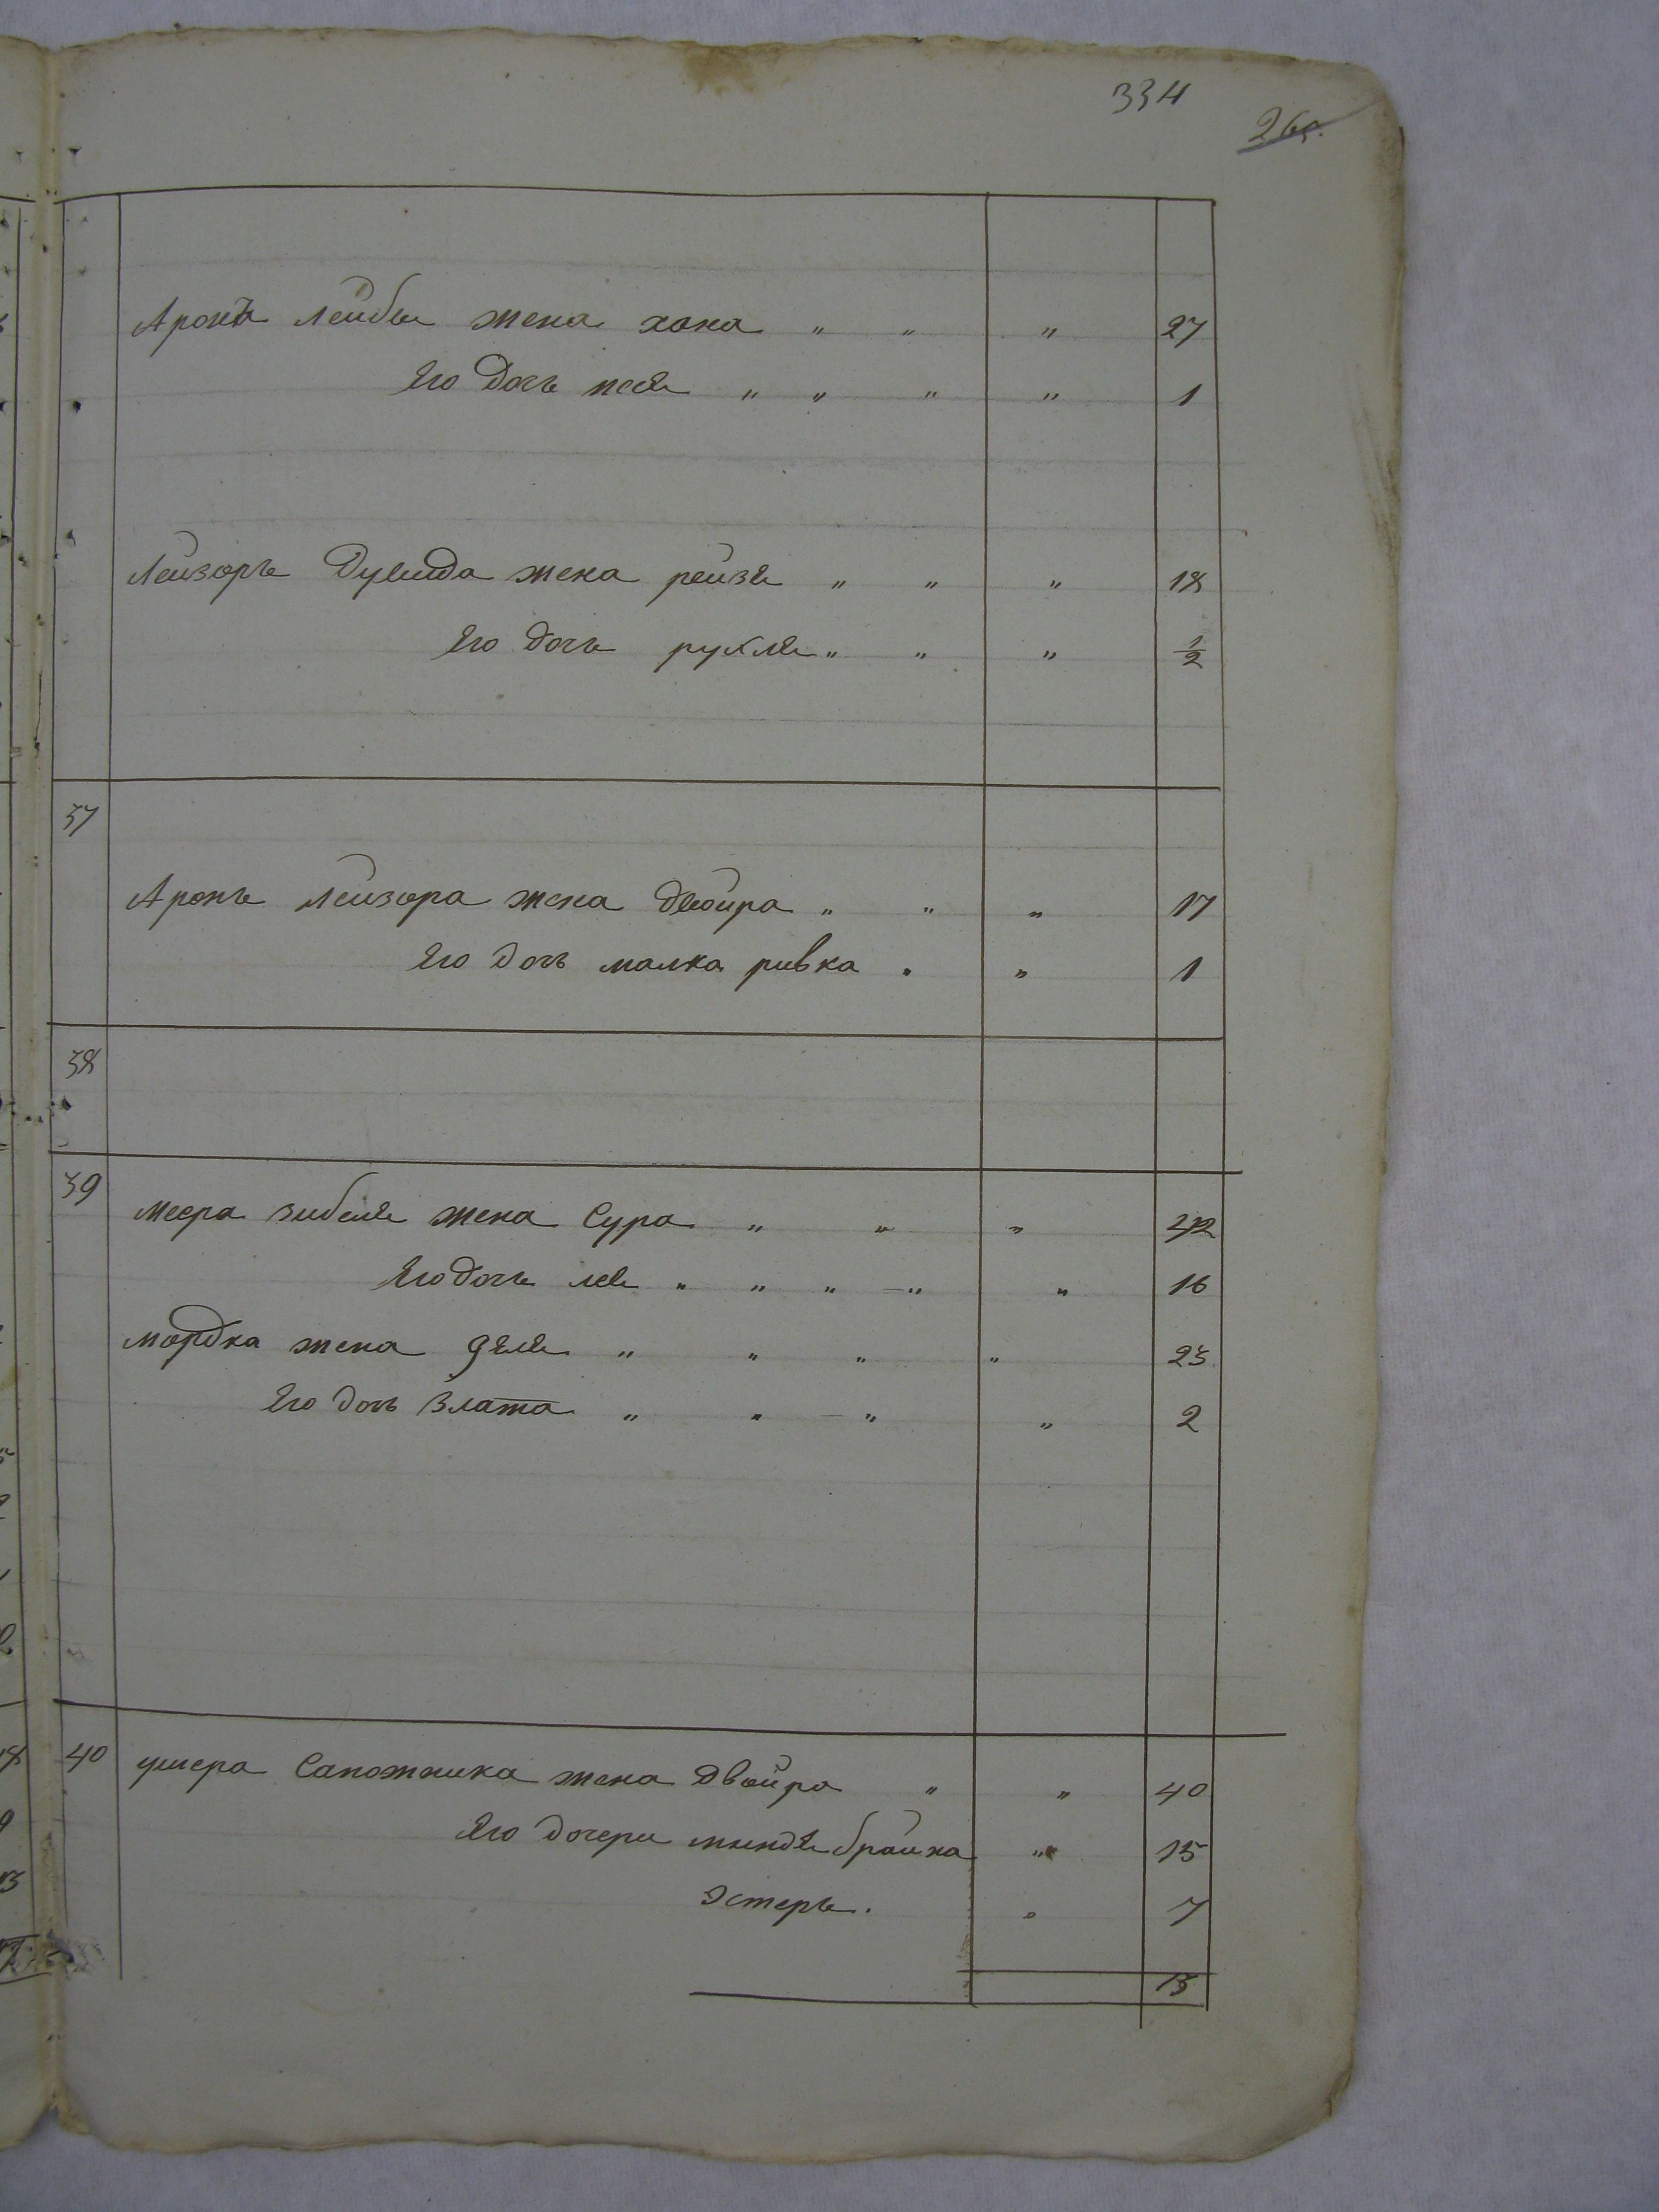 334
265.
Аронъ Лейбы жена хана " " " 27
Его дочь песя " " " " 1
Лейзоръ Дувида жена рейзя " " " 18
Его дочь рухля " " " ½
37
Аронъ Лейзора жена Двойра " " " 17
Его дочь малка ривка " " 1
38
39
меера зибеля жена Сура " " " 42
Его дочь лея " " " " " 16
мордка жена " " " " 23
Его дочь Злата " " " " 2
40 ушера Сапожника жена Двойра " " 40
Его дочери миндя брайна " 15
Эстеръ. " 7
13